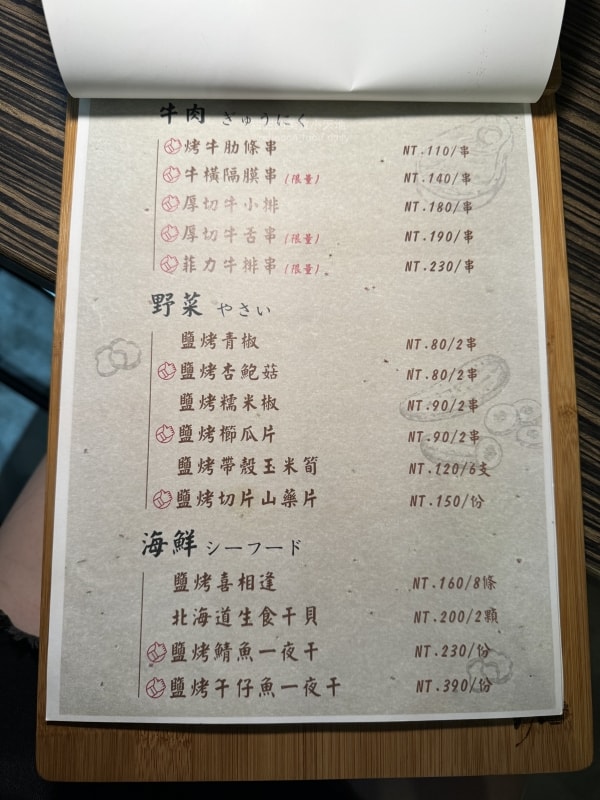 牛肉 ぎゅうにく
烤牛肋條串 NT.110/串
牛橫隔膜串(限量) NT.140/串
厚切牛小排 NT.180/串
厚切牛舌串(限量) NT.190/串
菲力牛排串(限量) NT.230/串
野菜 やさい
鹽烤青椒 NT.80/2串
鹽烤杏鮑菇 NT.80/2串
鹽烤糯米椒 NT.90/2串
鹽烤櫛瓜片 NT.90/2串
鹽烤帶殼玉米筍 NT.120/6支
鹽烤切片山藥片 NT.150/份
海鮮 シーフード
鹽烤喜相逢 NT.160/8條
北海道生食干貝 NT.200/2顆
鹽烤鯖魚一夜干 NT.230/份
鹽烤午仔魚一夜干 NT.390/份